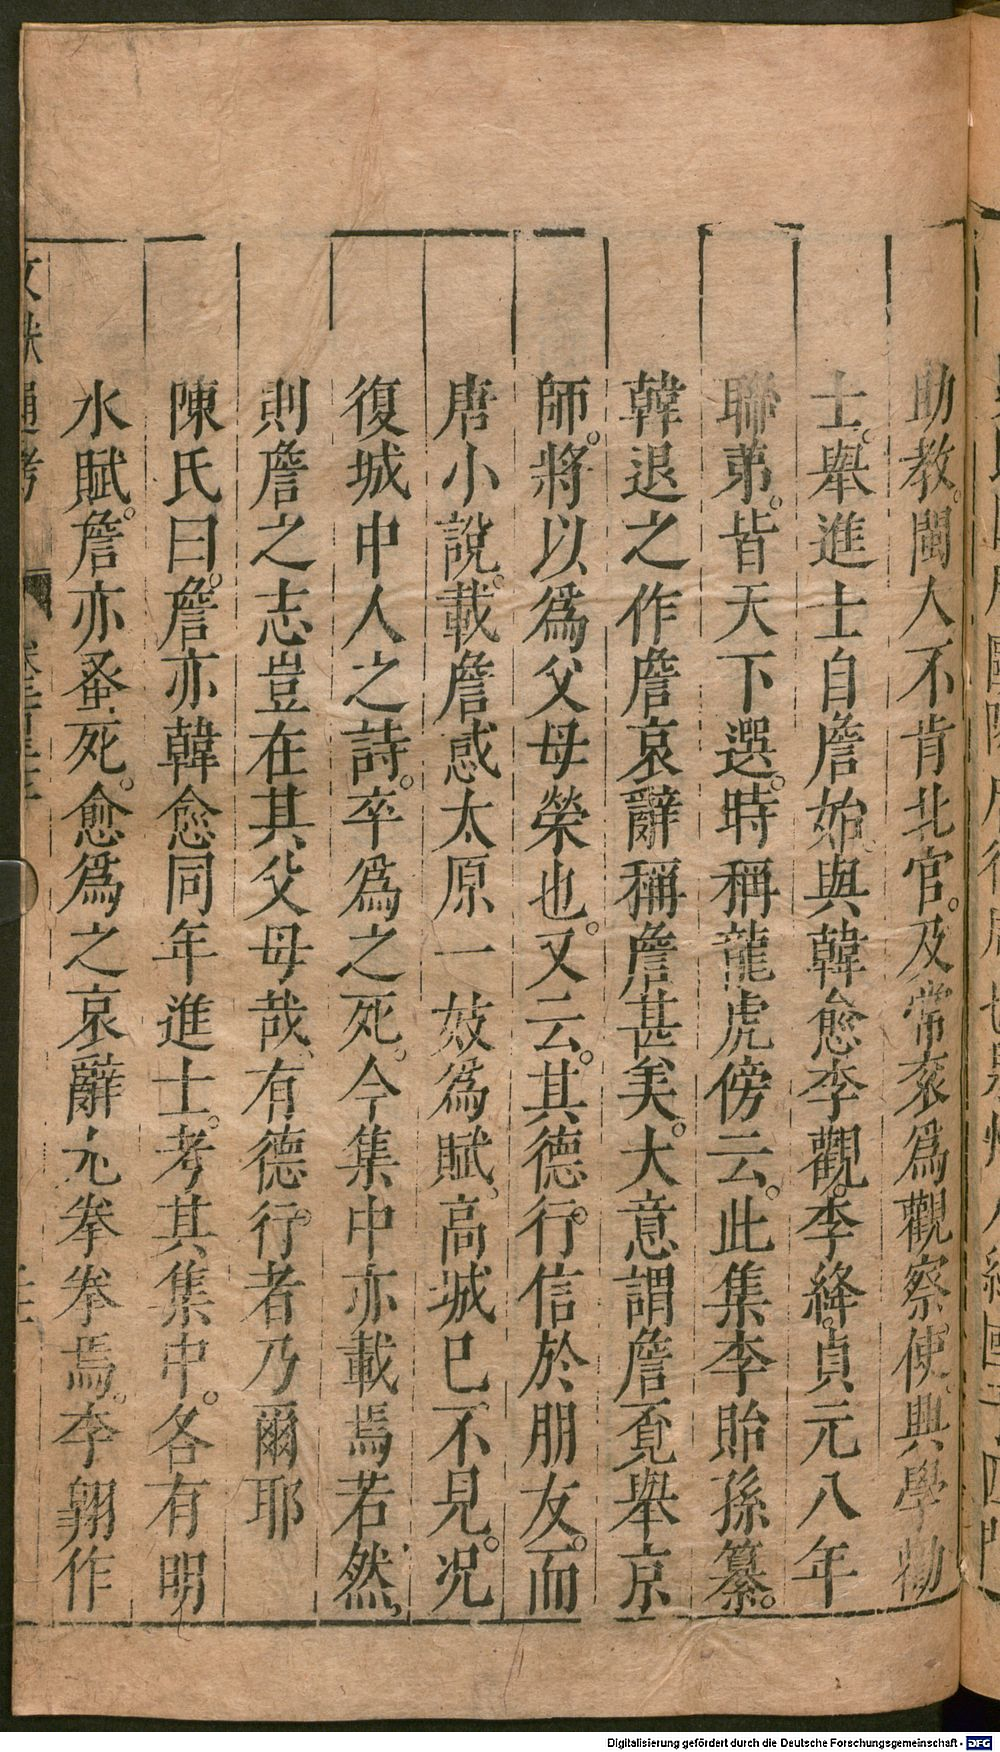 助教。閩人不肯北官。及常衮爲觀察使。興學勸
士。舉進士自詹始。與韓愈李觀。李絳。貞元八年
聯弟。皆天下選。時稱龍虎傍云。此集李貽孫纂。
韓退之作詹哀辭稱詹甚美。大意謂詹覔舉京
師。將以爲父母榮也。又云。其德行。信於朋友。而
唐小說。載詹惑太原一妓爲賦。高城巳不見。况
復城中人之詩。卒爲之死。今集中亦載焉若然。
則詹之志豈在其父母哉。有德行。者乃爾耶
陳氏曰。詹亦韓愈同年進士。考其集中。各有明
水賦。詹亦蚤死。愈爲之哀辭尤拳拳焉。李翱作
文獻通考
Digitalisierung gefördert durch die Deutsche Forschungsgemeinschaft - DFG